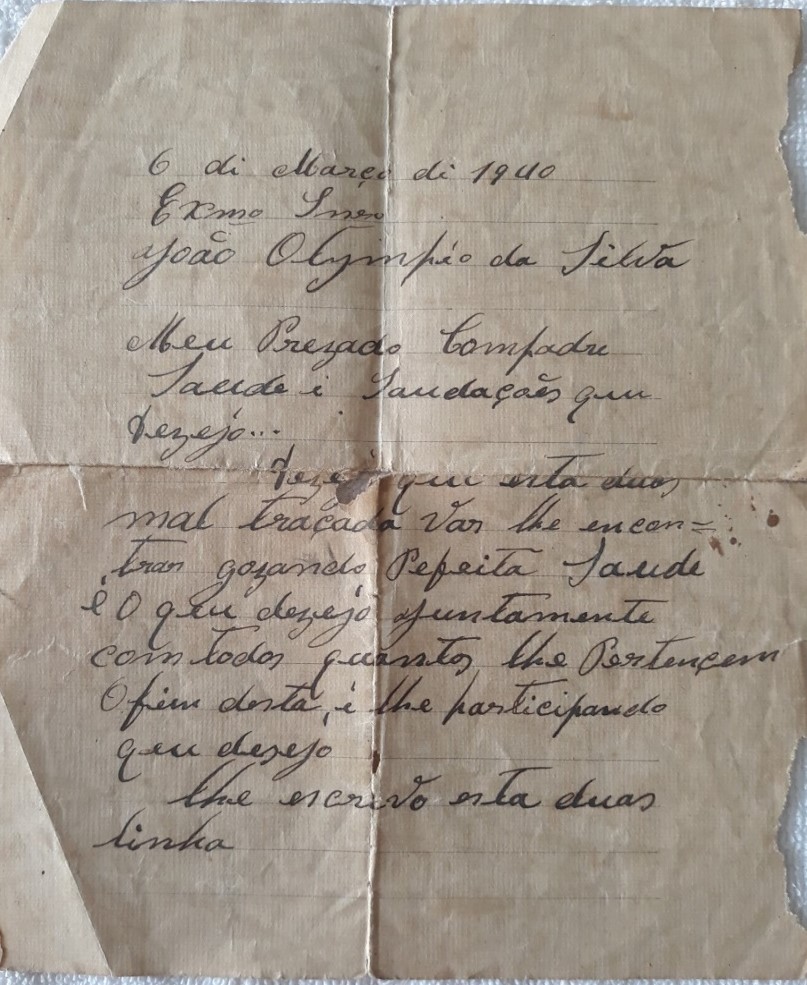 6 di Março di 1940
Exmo Snro
João Olympio da Silva
Meu Prezado Compadre
Saude i Saudações que
Dezejo...
Dezejo que esta duas
mal traçada Vas lhe encon=
tran gozando Pefeita Saude
é O que dezejo juntamente
com todos quantos lhe Pertençem
O fim desta, i lhe participando
que desejo
lhe escrevo esta duas
linha